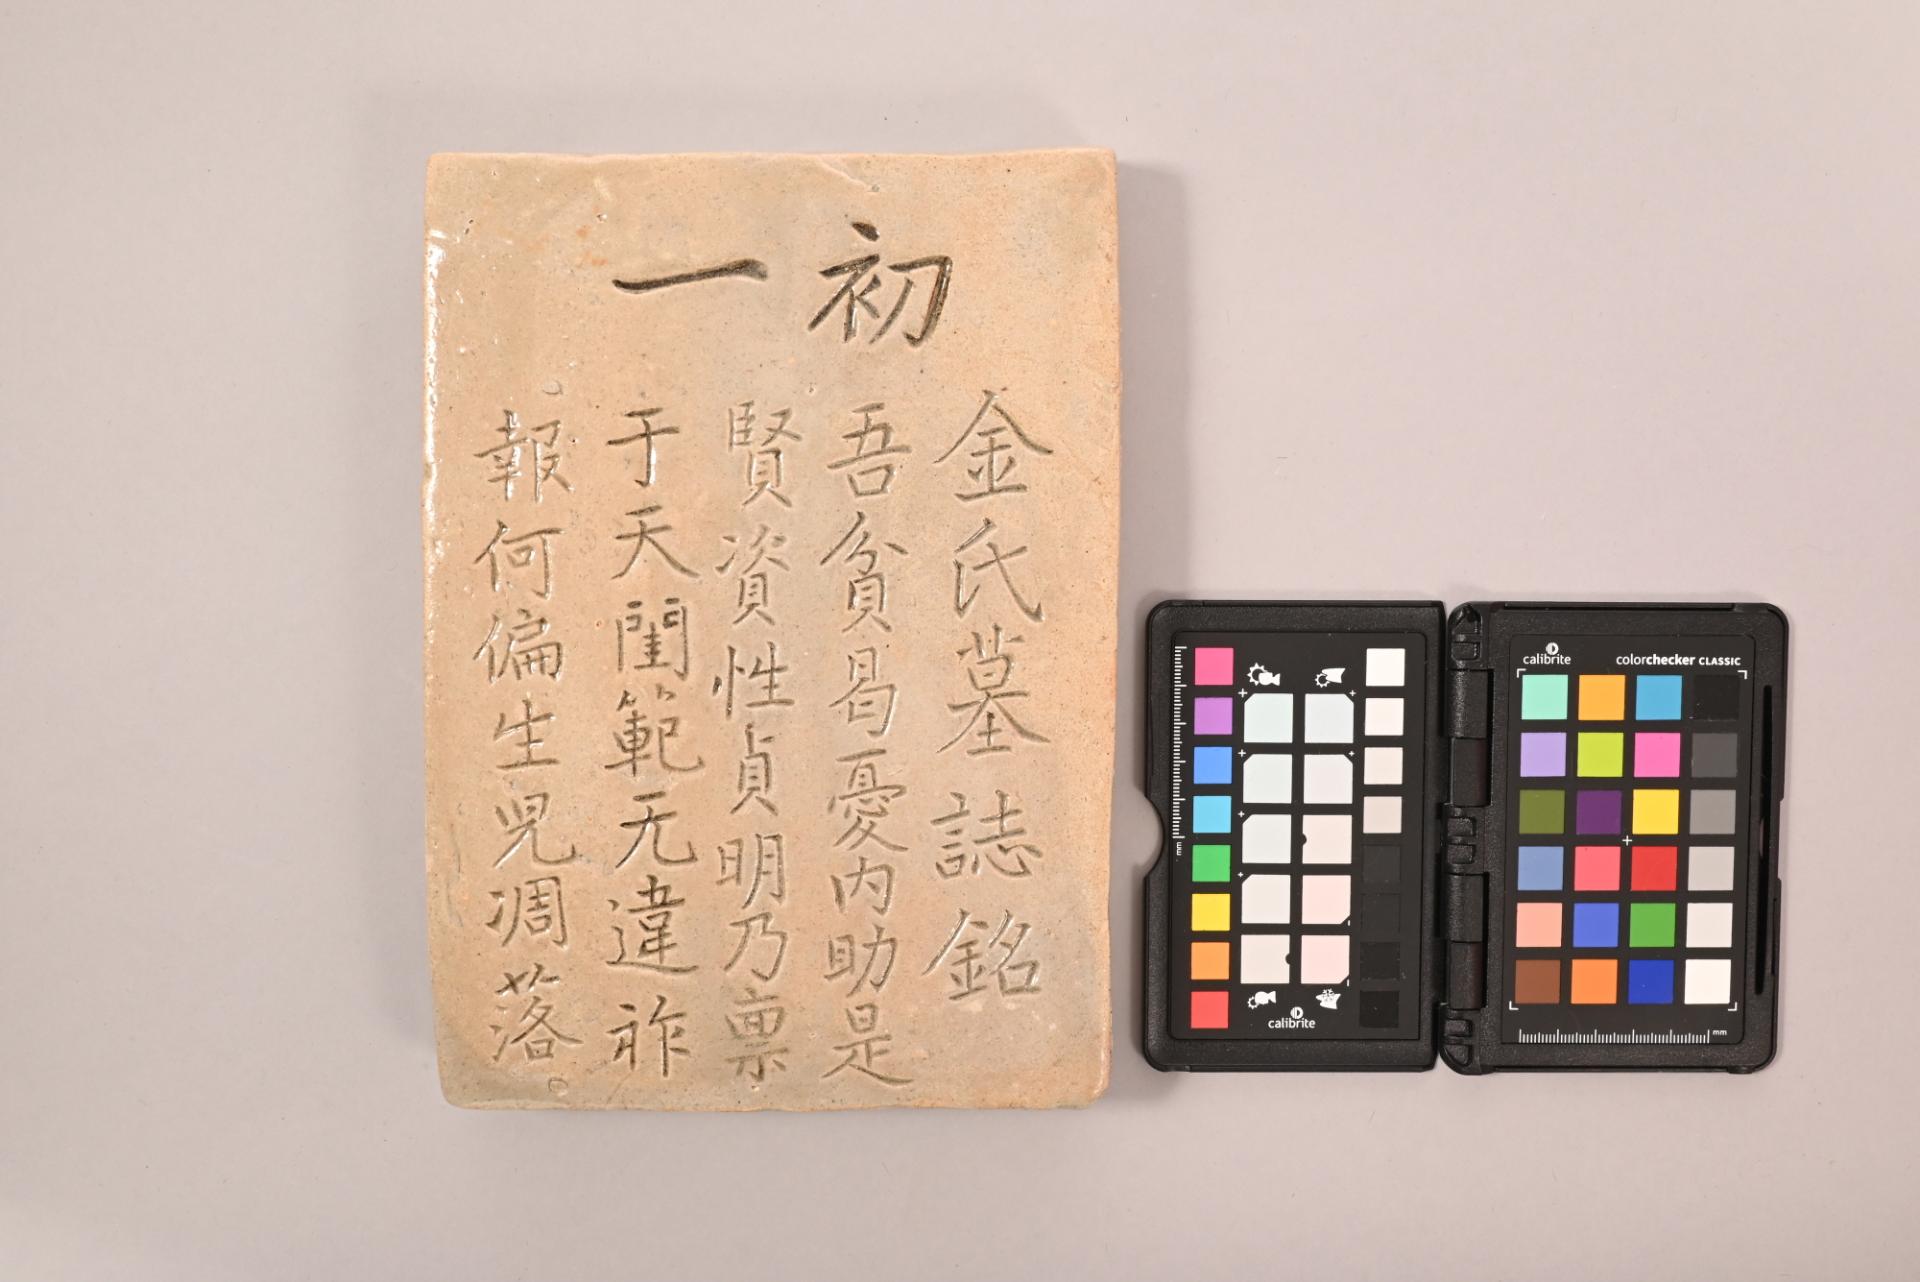 初一
金氏墓誌銘
吾貧曷憂内助是
賢資性貞明乃禀
于天閨範无違祚
報何偏生児凋落
calibrite
calibrite
colorchecker CLASSIC
mm
mm